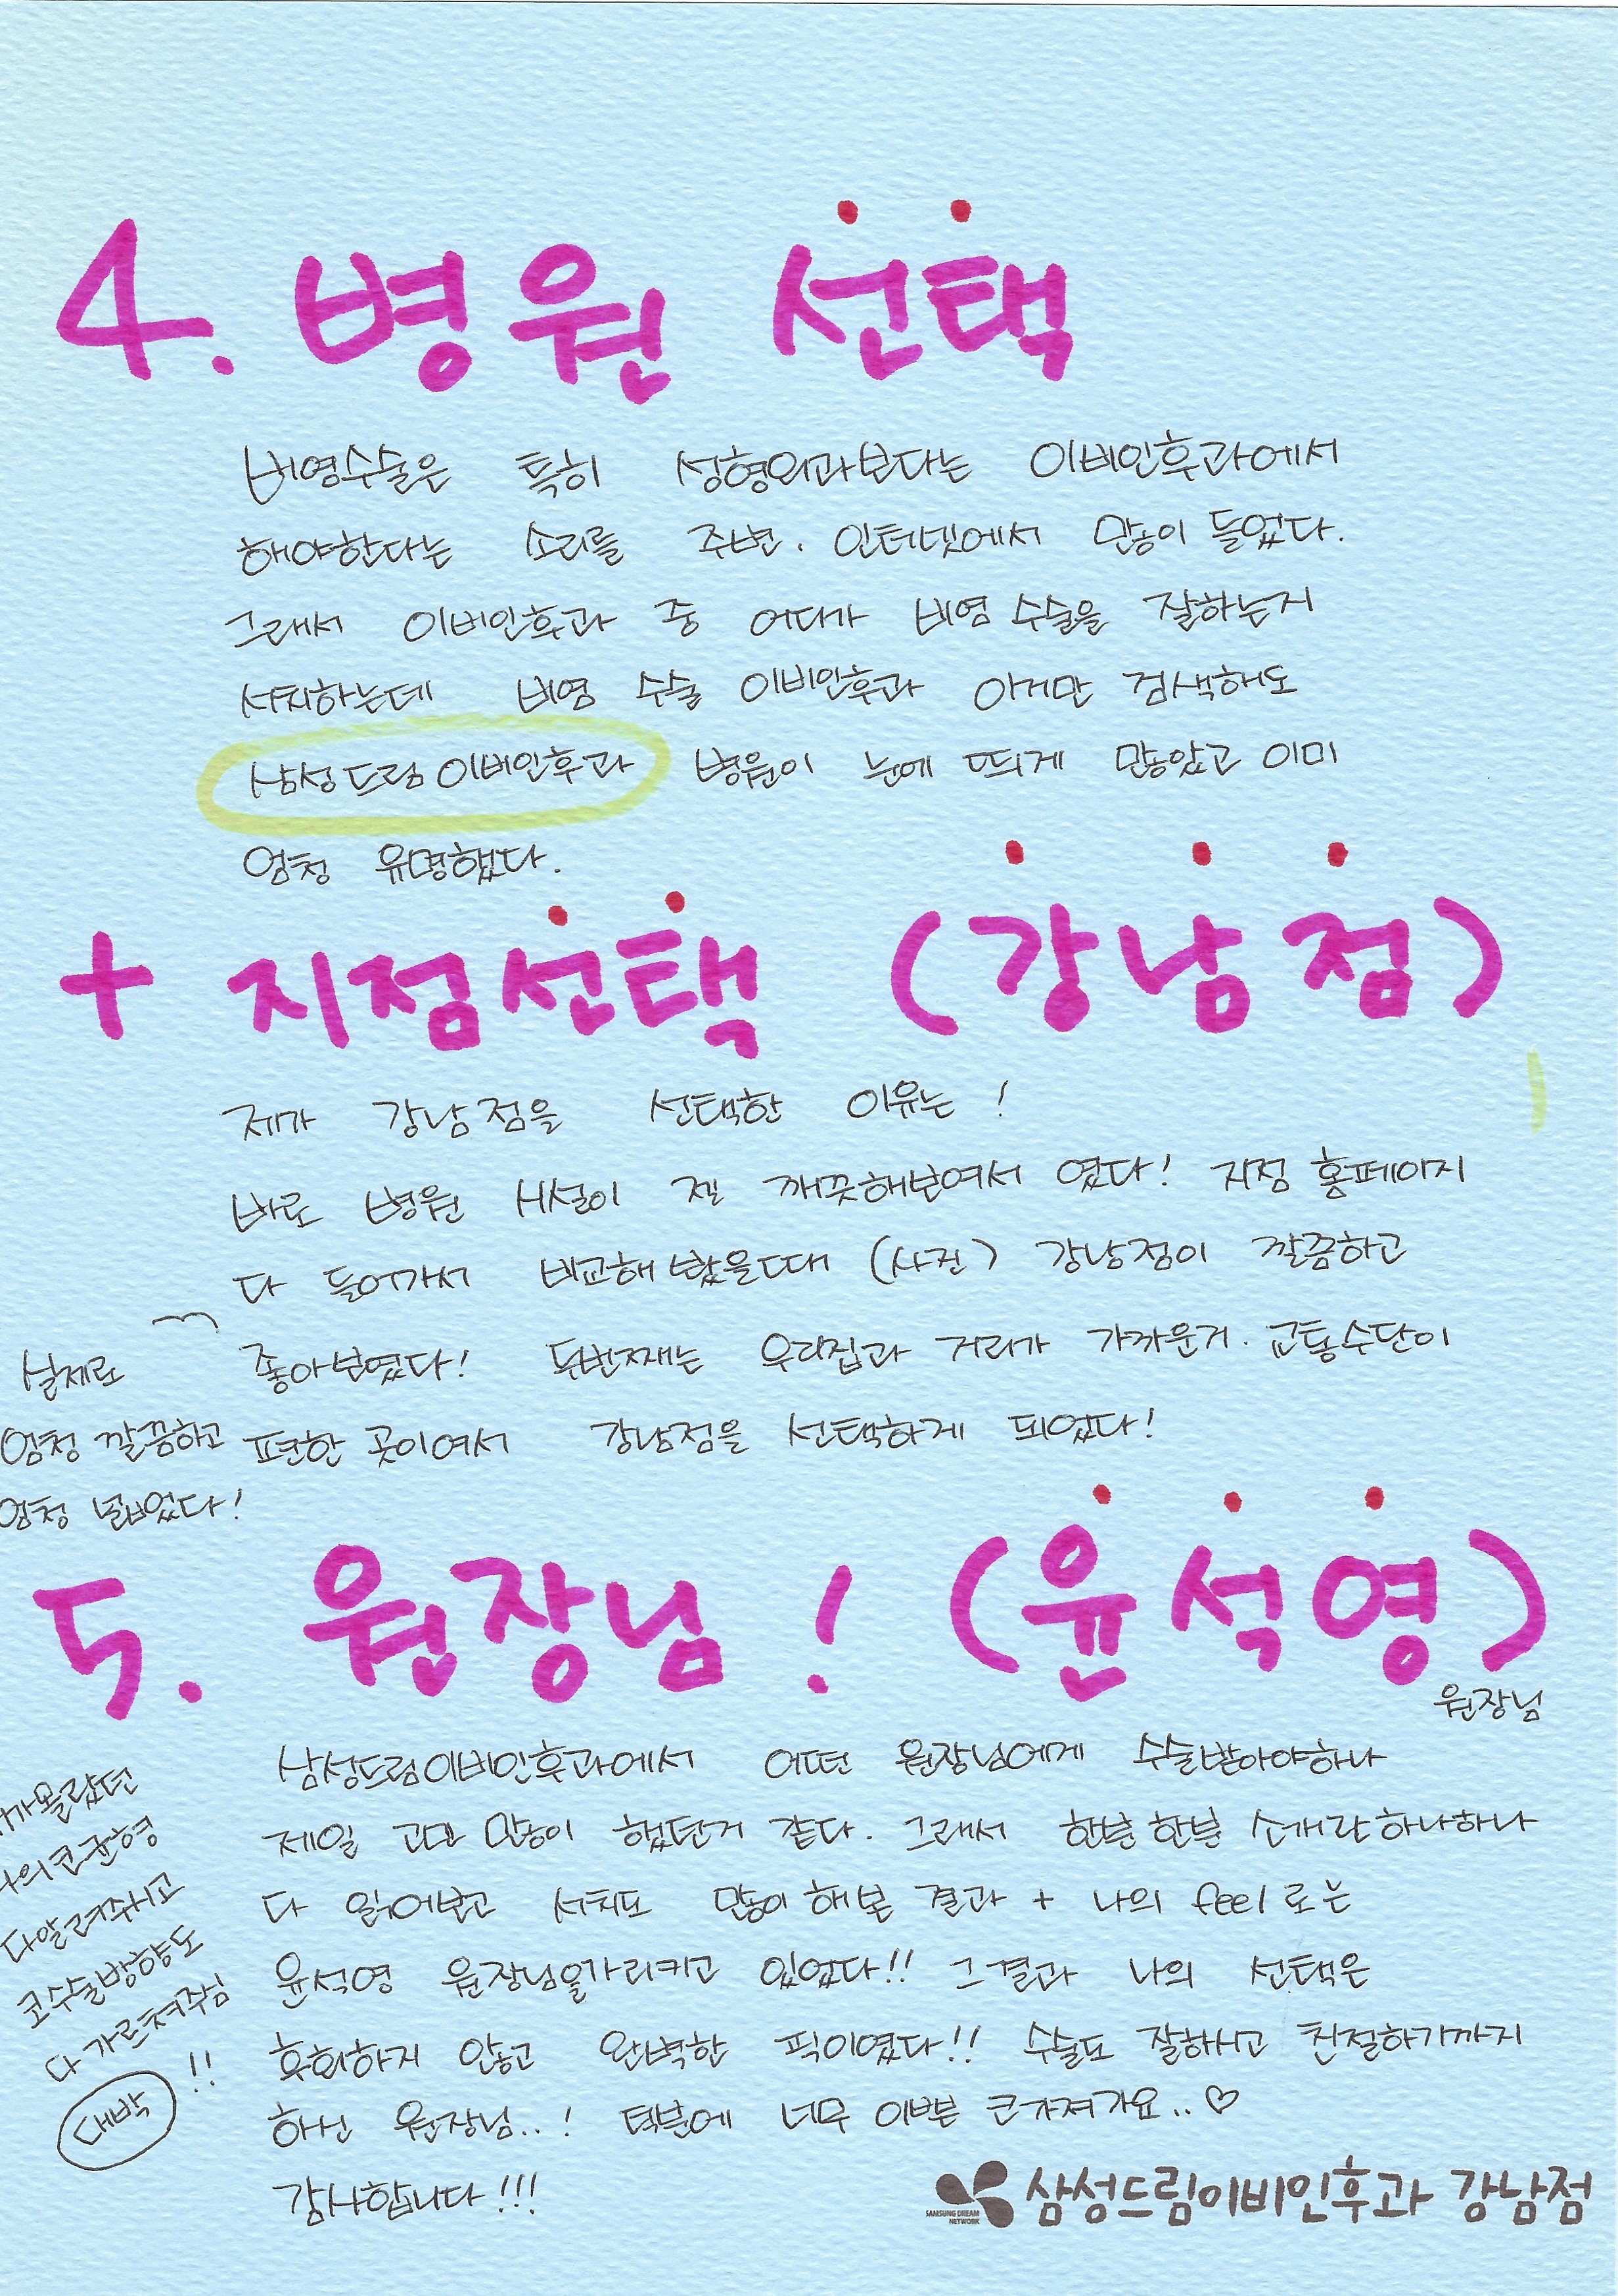 4. 병원 선택
비염수술은 특히 성형외과보다는 이비인후과에서
해야한다는 소리를 주변. 인터넷에서 많이 들었다.
그래서 이비인후과 중 어디가 비염 수술을 잘하는지
서치하는데 비염 수술 이비인후과 이거만 검색해도
삼성드림이비인후과 병원이 눈에 띄게 많았고 이미
엄청 유명했다.
+ 지점선택 (강남점)
제가 강남점을 선택한 이유는!
바로 병원 시설이 젤 깨끗해보여서 였다! 지점 홈페이지
다 들어가서 비교해 봤을때 (사진) 강남점이 깔끔하고
좋아보였다! 두번째는 우리집과 거리가 가까운거. 교통수단이
편한 곳이여서 강남점을 선택하게 되었다!
실제로
엄청 깔끔하고
엄청 넓었다!
5. 원장님! (윤석영)
원장님
삼성드림이비인후과에서 어떤 원장님에게 수술받아야하나
제일 고민 많이 했던거 같다. 그래서 한분한분 소개란하나하나
다 읽어보고 서치도 많이 해본 결과 + 나의 feel로는
윤석영 원장님을가리키고 있었다!! 그결과 나의 선택은
후회하지 않고 완벽한 픽이였다!! 수술도 잘하시고 친절하기까지
하신 원장님..! 덕분에 너무 이쁜 코가져가요..♡
감사합니다!!!
몰랐던
코균형
다알려주시고
코수술방향도
다 가르쳐주심
대박!!
SAMSUNG DREAM
NETWORK
삼성드림이비인후과 강남점